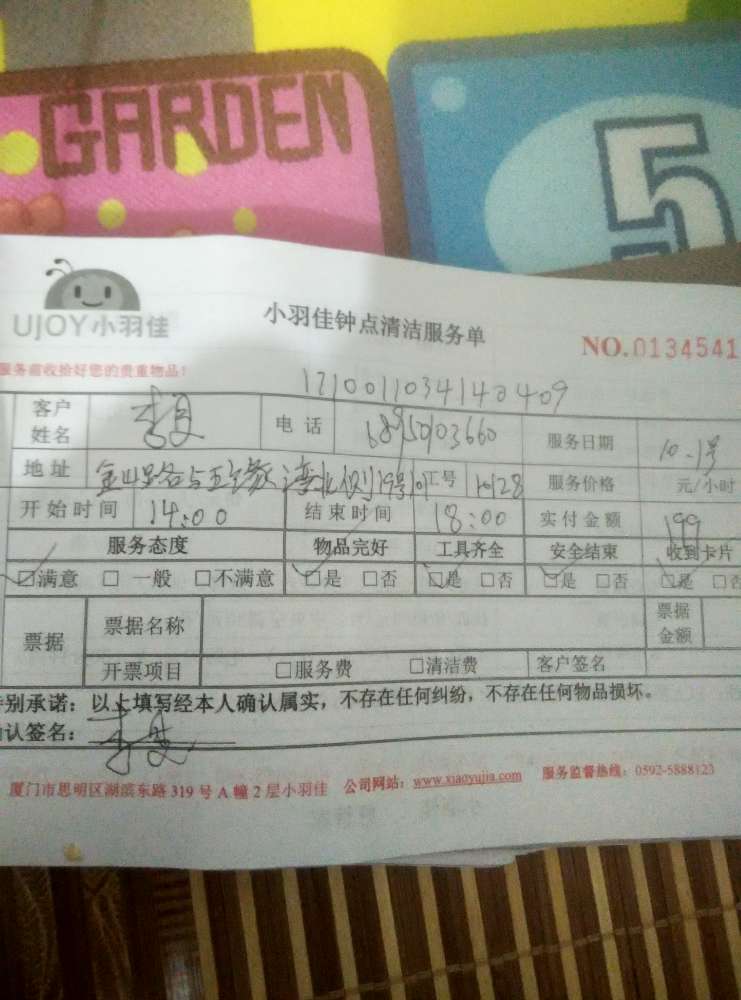 GARDEN
5
UJOY小羽佳
小羽佳钟点清洁服务单
NO.0134541
服务前收拾好您的贵重物品！
1710011034140409
客户姓名 电话 服务日期 10.1号
地址 工号 1028 服务价格 元/小时
开始时间 14:00 结束时间 18:00 实付金额 199
服务态度 物品完好 工具齐全 安全结束 收到卡片
☑满意 □一般 □不满意 ☑是 □否 ☑是 □否 ☑是 □否 ☑是 □否
票据 票据名称 票据金额
开票项目 □服务费 □清洁费 客户签名
特别承诺：以上填写经本人确认属实，不存在任何纠纷，不存在任何物品损坏。
确认签名：
厦门市思明区湖滨东路 319 号 A 幢 2 层小羽佳 公司网站：www.xiaoyujia.com 服务监督热线：0592-5888123